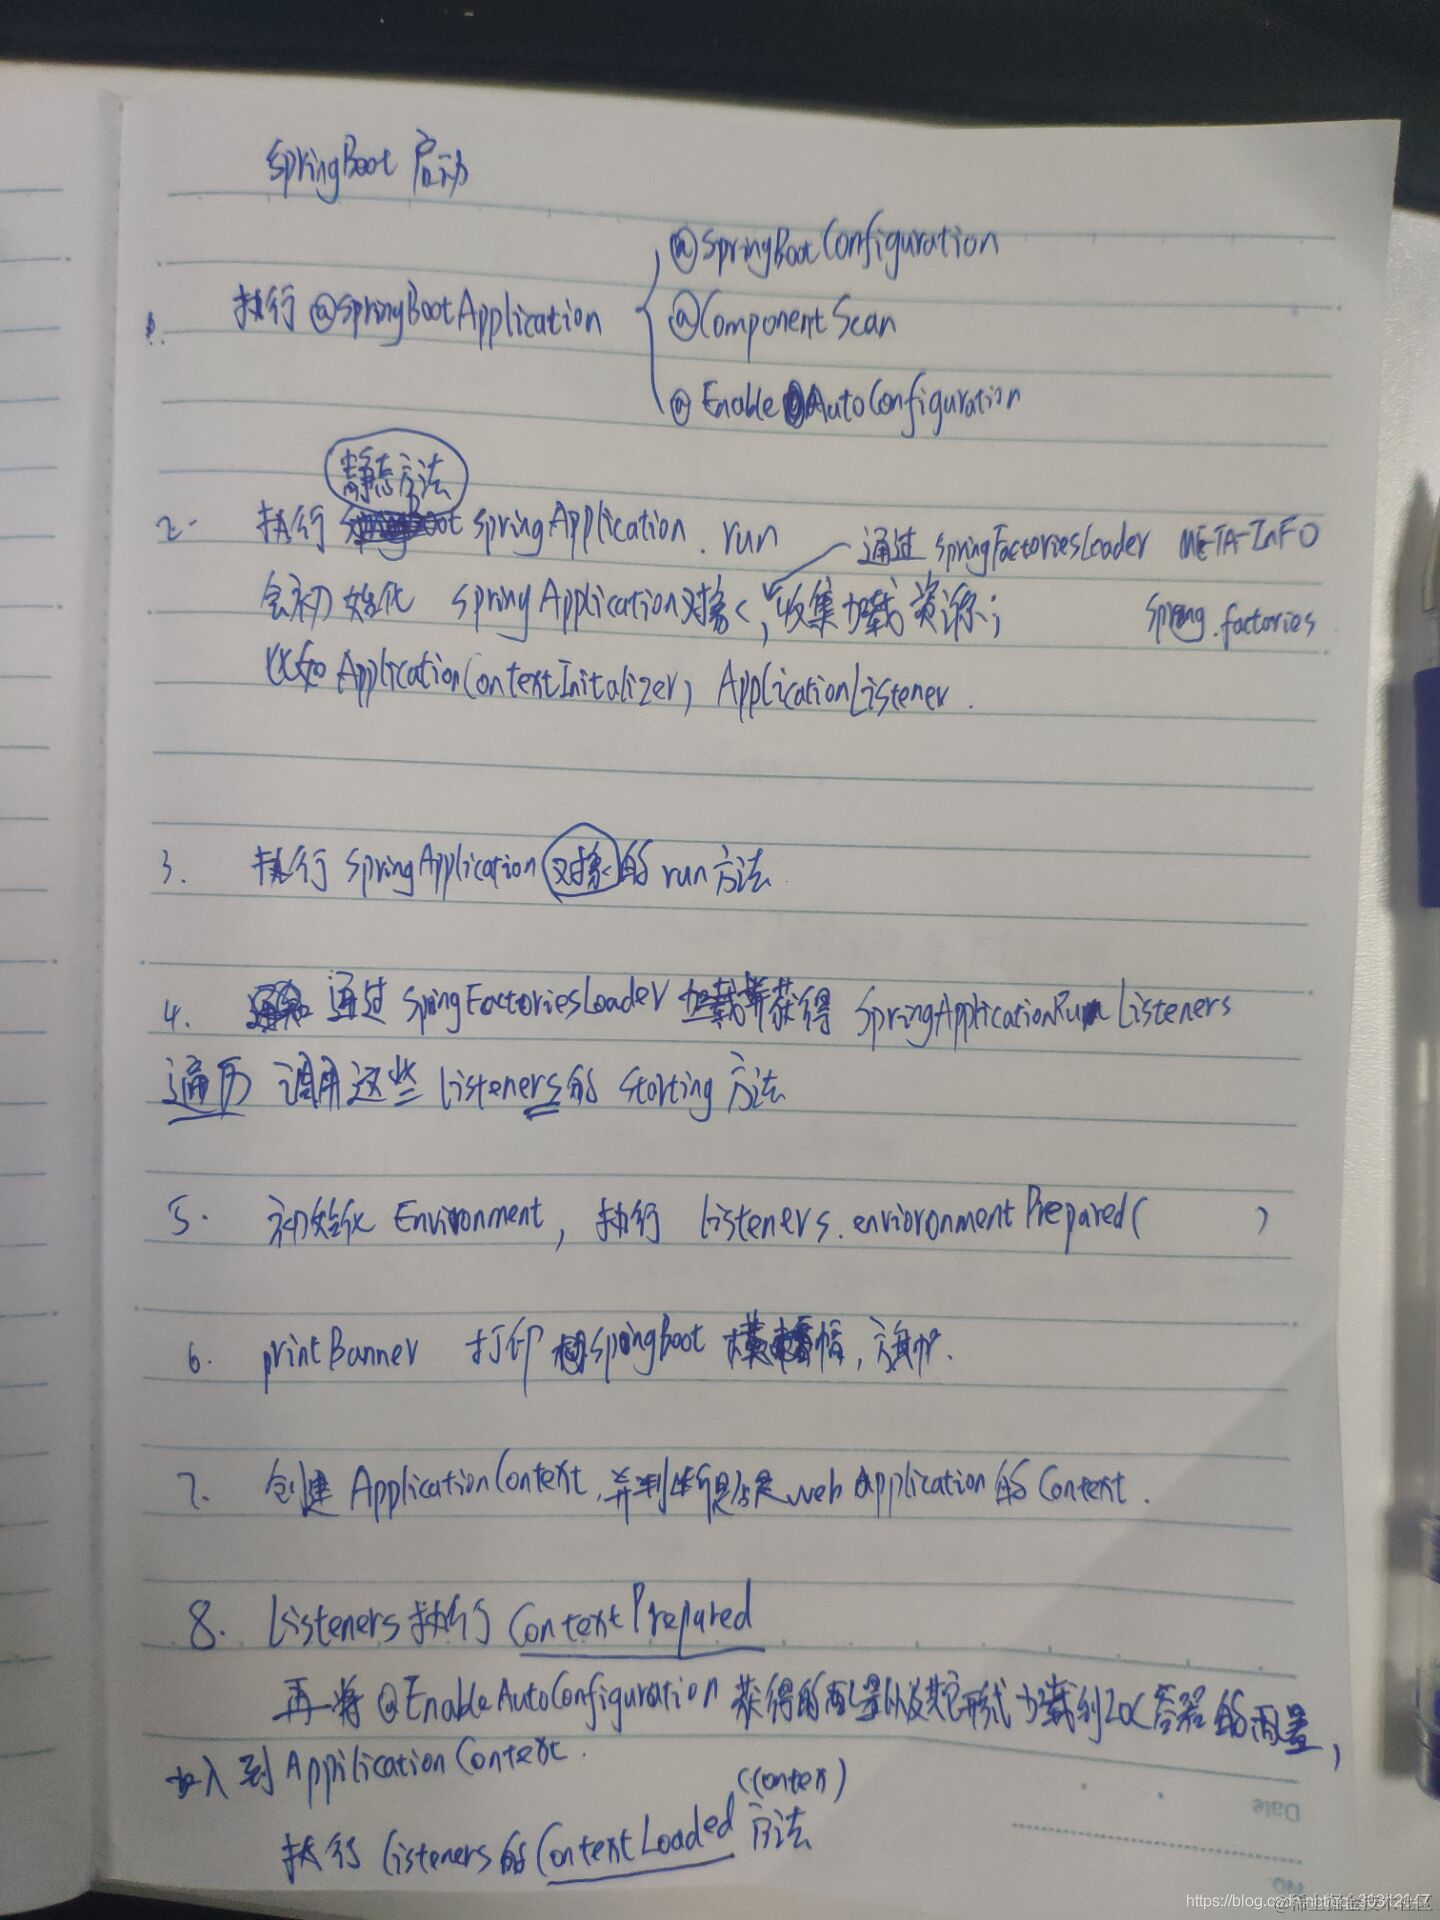 SpringBoot 启动
@SpringBootConfiguration
1. 执行 @SpringBootApplication
@ComponentScan
@EnableAutoConfiguration
静态方法
2. 执行 SpringApplication.run
通过 SpringFactoriesLoader META-INFO
会初始化 SpringApplication对象, 收集加载资源;
spring.factories
比如 ApplicationContextInitalizer, ApplicationListener.
3. 执行 SpringApplication 对象的 run方法.
4. 通过 SpringFactoriesLoader 加载并获得 SpringApplicationRunListeners
遍历 调用这些 listeners的 starting 方法
5. 初始化 Environment, 执行 listeners.envioronmentPrepared( )
6. printBanner 打印 SpringBoot 横幅, 旗帜.
7. 创建 ApplicationContext, 并判断是否是 web application 的 Context.
8. Listeners 执行 ContextPrepared
再将 @EnableAutoConfiguration 获得的配置以及其它形式加载到IOC容器的配置,
加入到 AppilicationContext.
(contex)
执行 listeners的 ContextLoaded 方法
Date
No.
https://blog.csdn.net/qq_30312147
@稀土掘金技术社区